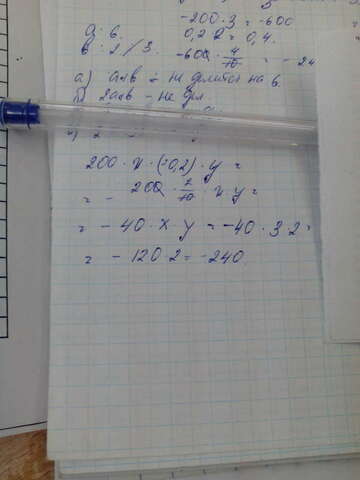 -200·3 = -600
a: 6.
0,2·2 = 0,4.
в: 2/3.
-600·4/10 = -24
а) а+в
не делится на 6.
б) 2а+в - не дел.
200·x·(-0,2)·y =
= -200·2/10·x·y =
= -40·x·y = -40·3·2=
= -120·2 = -240.